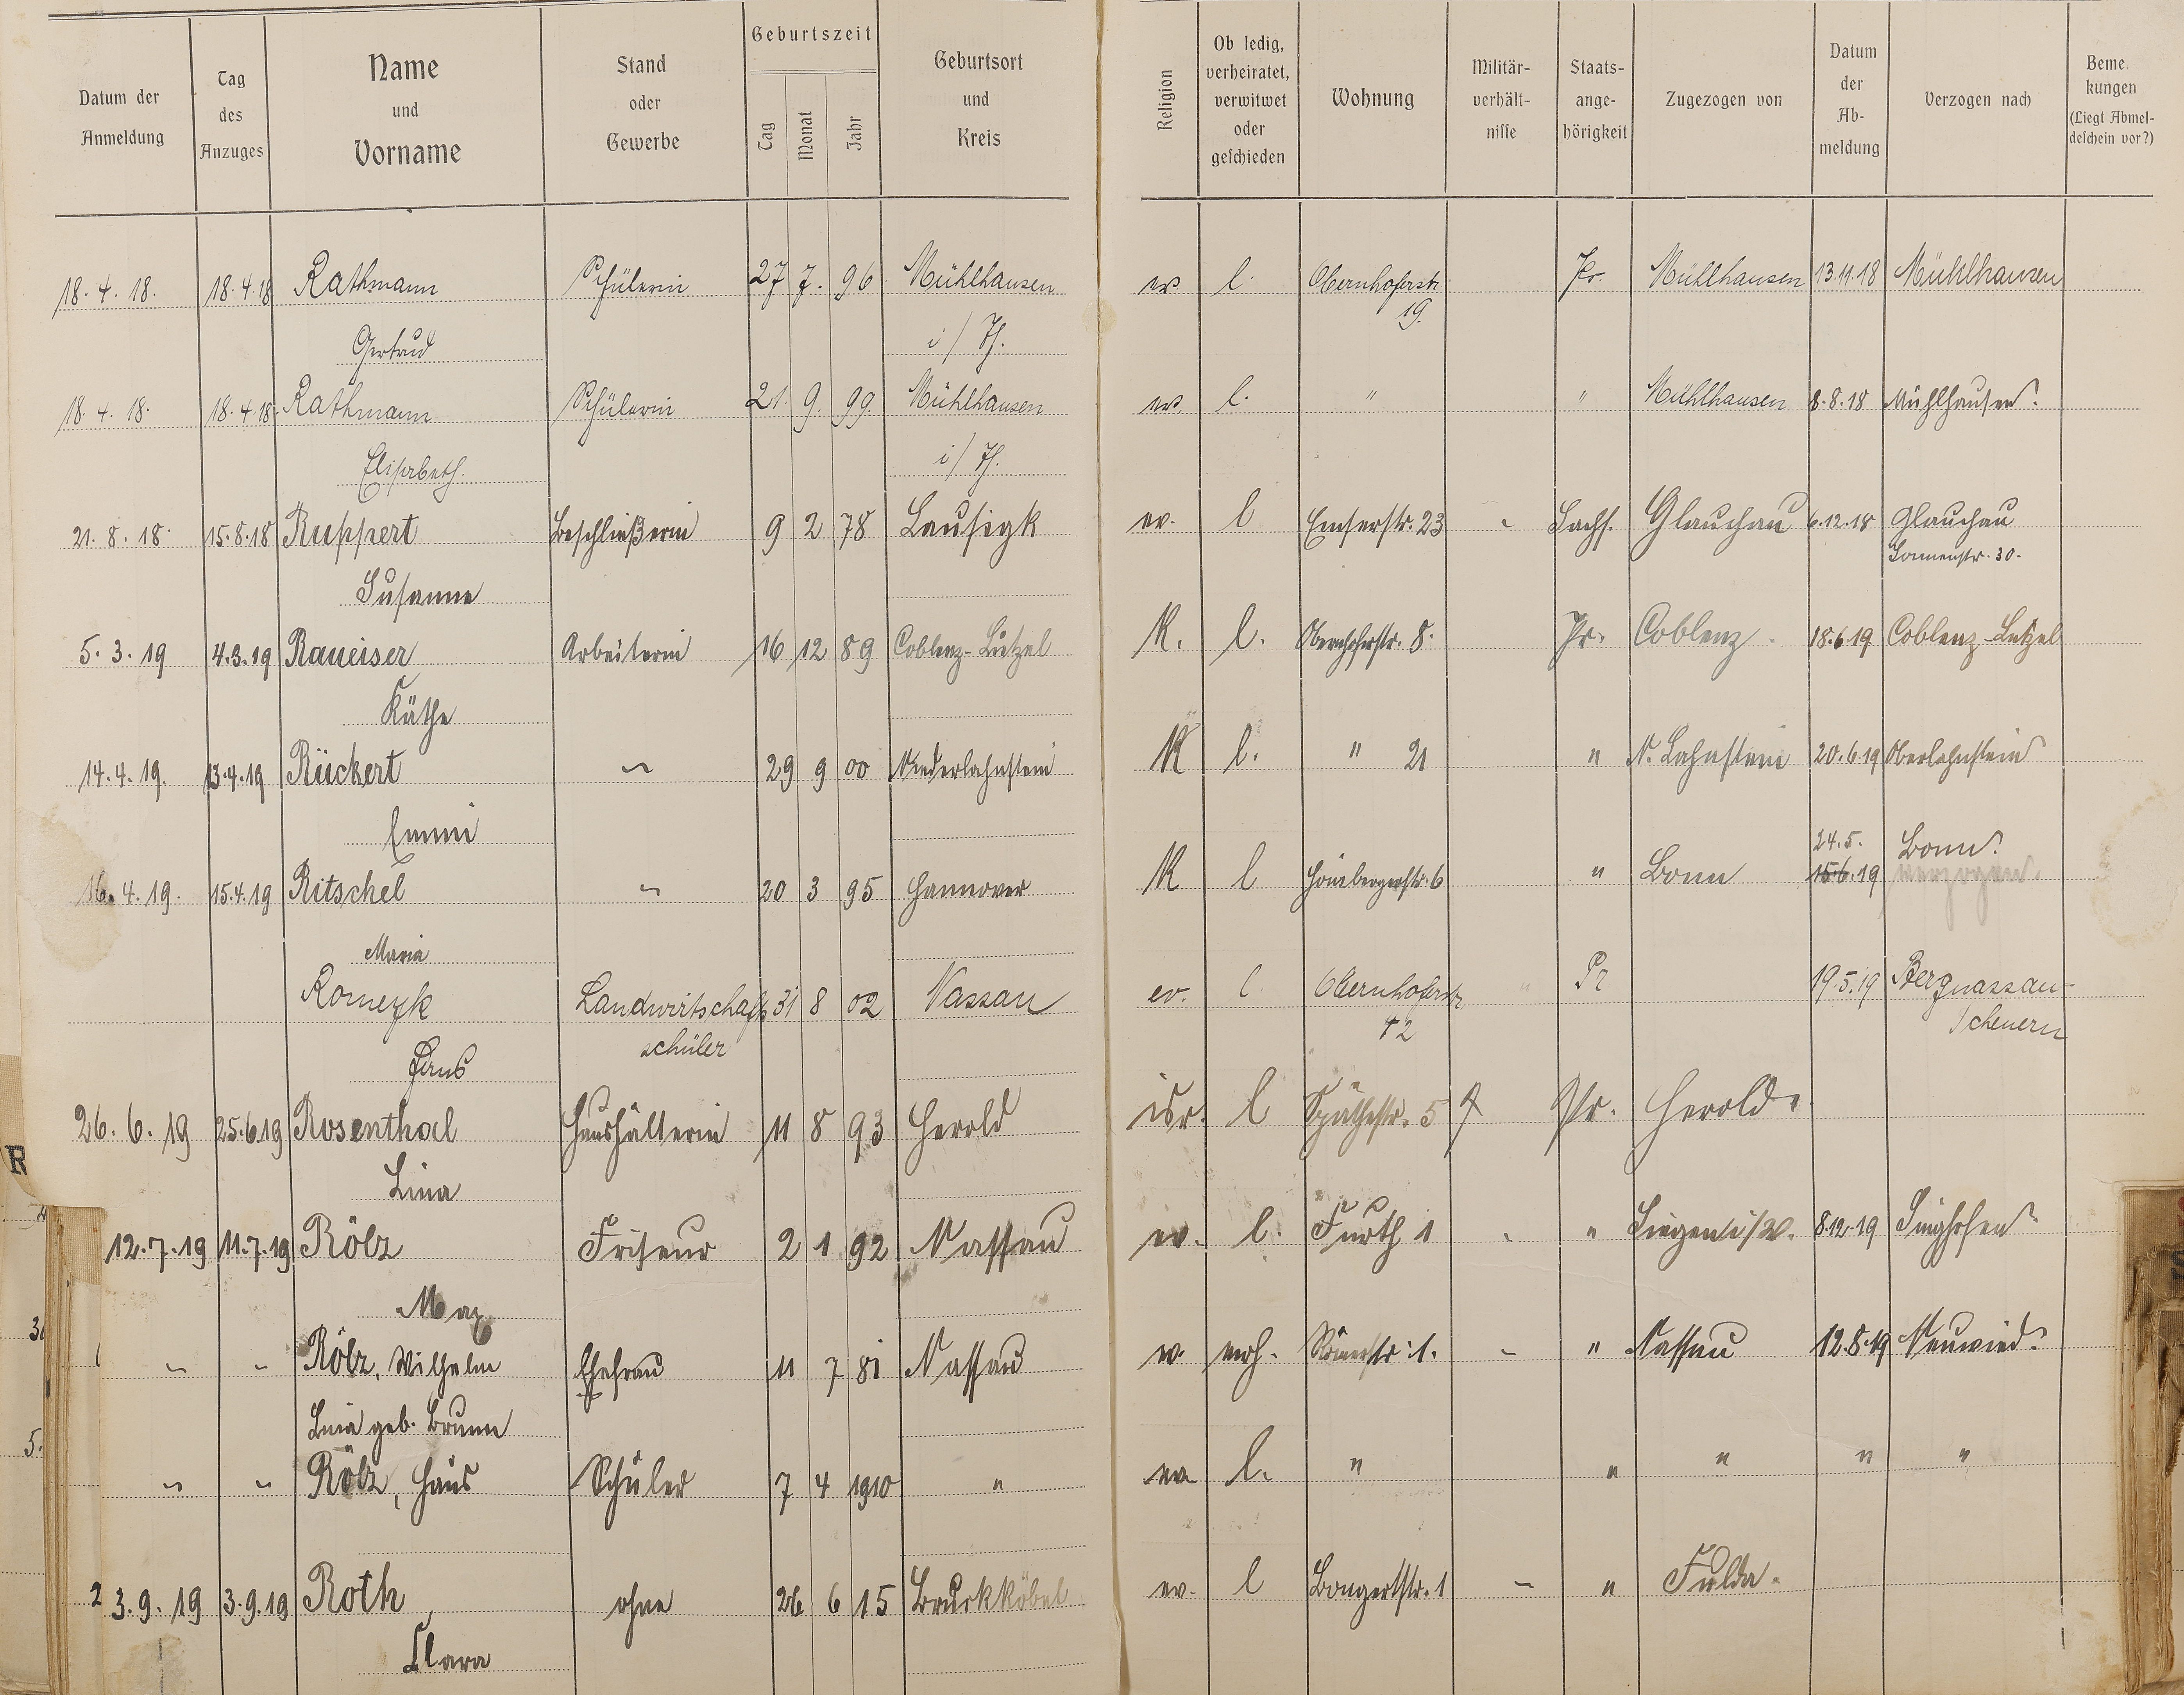 Datum der Anmeldung | Tag des Anzuges | Name und Vorname | Stand oder Gewerbe | Geburtszeit Tag Monat Jahr | Geburtsort und Kreis | Religion | Ob ledig, verheiratet, verwitwet oder geschieden | Wohnung | Militär-verhält-nisse | Staats-ange-hörigkeit | Zugezogen von | Datum der Ab-meldung | Verzogen nach | Beme. kungen (Liegt Abmel-deschein vor?)
18. 4. 18. 18. 4. 18 Rathmann Schülerin 27 7. 96 Mühlhausen ev. l. Obernhoferstr. Pr. Mühlhausen 13.11.18 Mühlhausen
Gertrud i/Th. 19.
18. 4. 18. 18. 4. 18. Rathmann Schülerin 21. 9. 99. Mühlhausen ev. l. " " Mühlhausen 8.8.18 Mühlhausen.
Elisabeth. i/Th.
21. 8. 18. 15.8.18 Ruppert Beschließerin 9 2 78 Lausigk ev. l Emserstr. 23 - Sachs. Glauchau 6.12.18 Glauchau
Susanne Sonnenstr. 30.
5. 3. 19 4.3.19 Raueiser Arbeiterin 16 12 89 Coblenz-Lützel K. l. Obernhoferstr. 8. Pr. Coblenz 18.6.19 Coblenz-Lützel
Käthe
14. 4. 19. 13.4.19 Rückert " 29 9 00 Niederlahnstein K l. " 21 " N. Lahnstein 20.6.19 Oberlahnstein
Emmi 24.5. Bonn.
16. 4. 19. 15.4.19 Ritschel " 20 3 95 Hannover K l Hömbergerstr. 6 " Bonn 15.6.19 verzogen.
Maria
Romeyk Landwirtschafts 31 8 02 Nassau ev. l. Obernhoferstr Pr 19.5.19 Bergnassau-
Hans schüler 42 Scheuern
26. 6. 19 25.6.19 Rosenthal Haushälterin 11 8 93 Herold isr. l Späthestr. 5 Pr. Herold.
Lina
12. 7. 19 11.7.19 Rölz Friseur 2 1 92 Nassau ev. l. Fürth 1 " Siegen i/W. 8.12.19 Singhofen.
Max
" " Rölz, Wilhelm Ehefrau 11 7 81 Nassau ev. verh. Römerstr. 1. - " Nassau 12.8.19 Neuwied.
Lina geb. Brunn
" " Rölz, Hans Schüler 7 4 1910 " ev. l. " " " " "
23. 9. 19 3.9.19 Roth ohne 26 6 15 Bruchköbel ev. l Bongertstr. 1 - " Fulda.
Clara